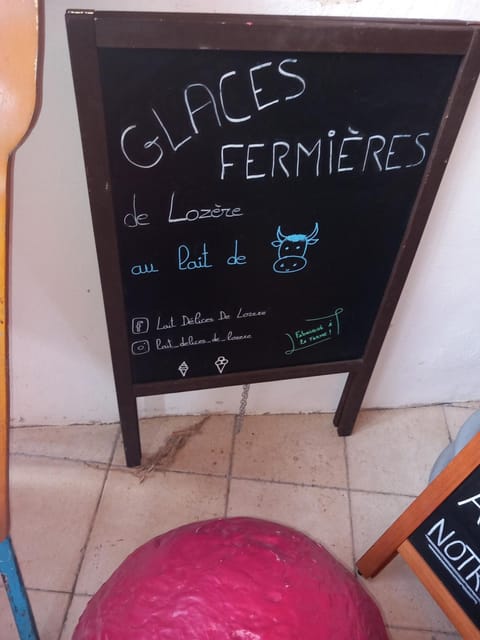 GLACES
FERMIÈRES
de Lozère
au lait de
Lait Délices De Lozere
lait_delices_de_lozere
Fabrication à
la ferme !
A
NOTR